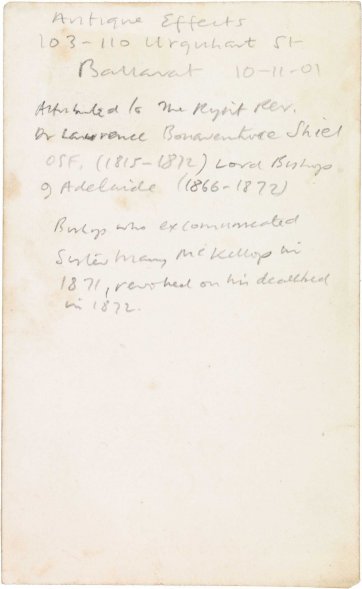 Antique Effects
103-110 Urquhart St
Ballarat 10-11-01
Attributed to The Right Rev.
Dr Lawrence Bonaventure Shiel
OSF, (1815-1872) Lord Bishop
of Adelaide (1866-1872)
Bishop who excommunicated
Sister Mary McKellop in
1871, revoked on his deathbed
in 1872.